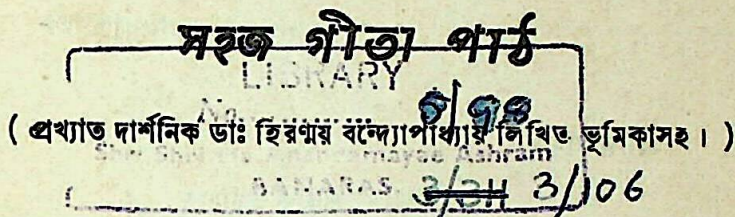 সহজ গীতা পাঠ
LIBRARY
No.
( প্রখ্যাত দার্শনিক ডাঃ হিরণ্ময় বন্দ্যোপাধ্যায় লিখিত ভূমিকাসহ। )
Shri Shri Ma Anandamayee Ashram
BANARAS
3/106